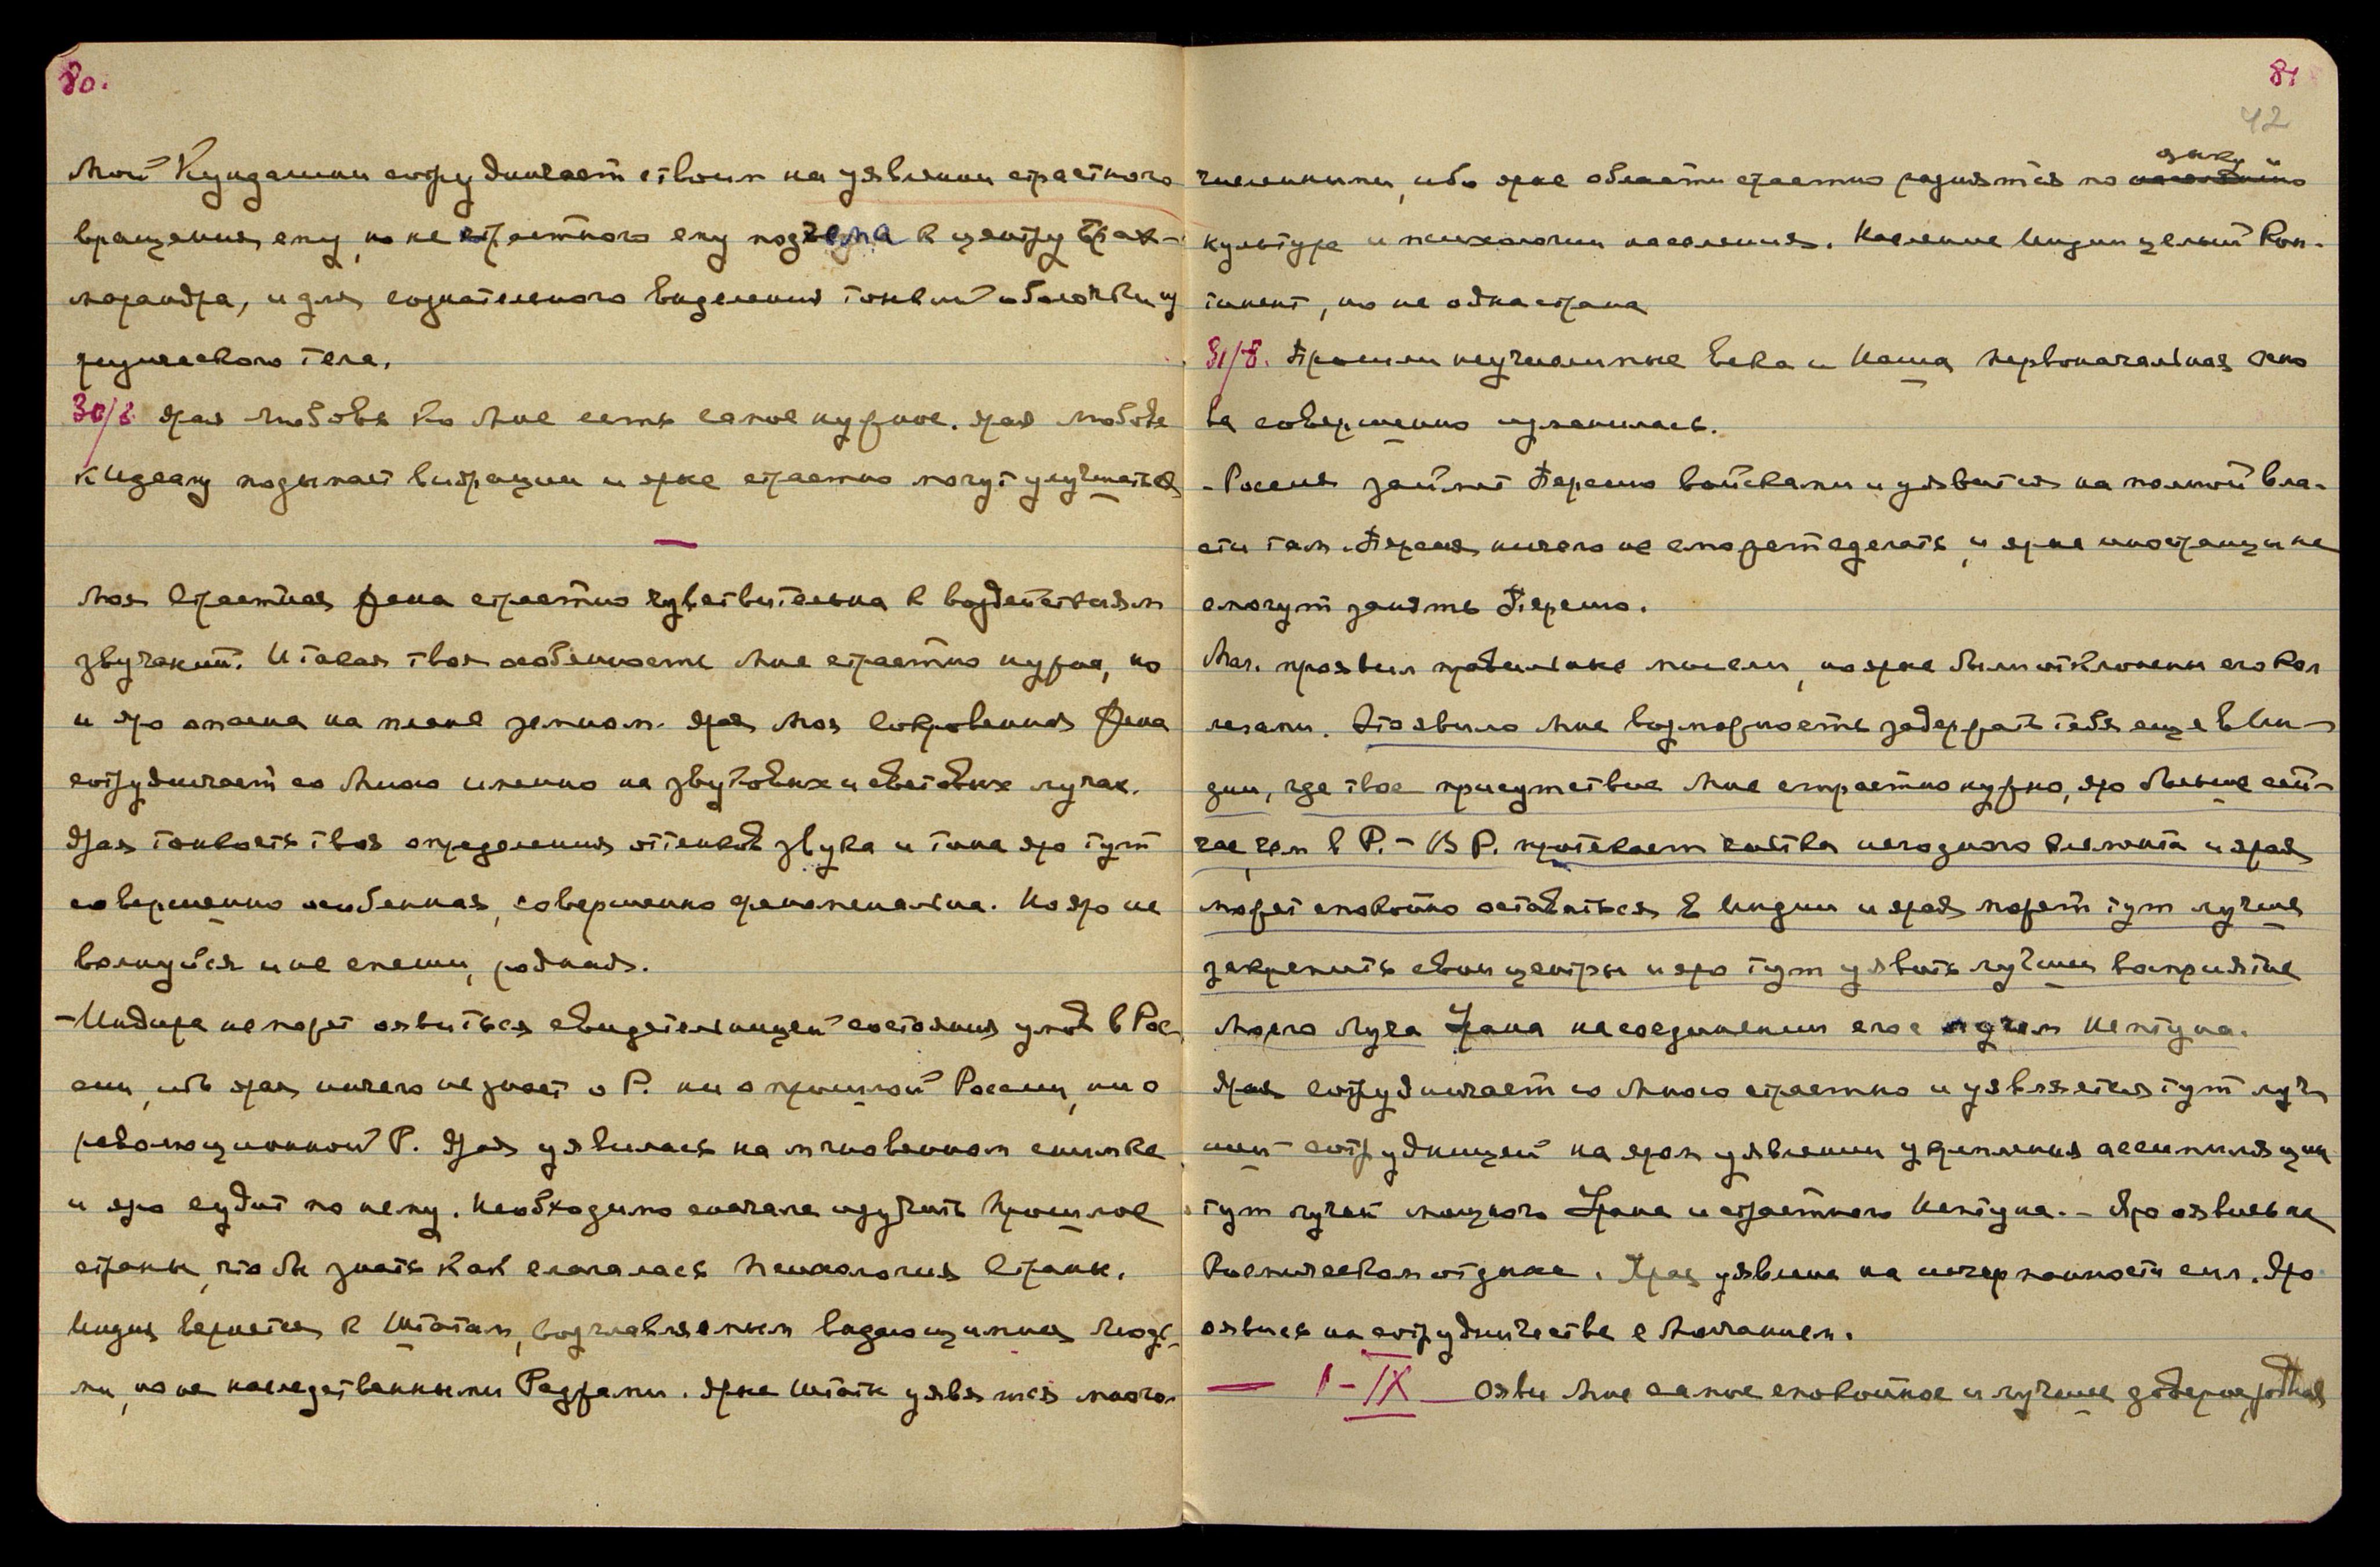 80.
Мой Кундалини сотрудничает с твоим на уявлении страстного
вращения ему, но не страстного ему подъема к центру Брах-
марандра, и для сознательного выделения тонкой оболочки из
физического тела.
30/8 Ярая любовь ко Мне есть самое нужное. Ярая любовь
к Идеалу подымает вибрации и ярые страстно могут улучшаться
—
Моя страстная Жена страстно чувствительна к воздействиям
звучаний. И такая твоя особенность Мне страстно нужна, но
и яро опасна на плане земном. Ярая Моя Сокровенная Жена
сотрудничает со Мною именно на звуковых и световых лучах.
Ярая тонкость твоя определения оттенков звука и тона яро тут
совершенно особенная, совершенно феноменальна. Но яро не
волнуйся и не спеши, родная.
- Индира не может оявиться свидетельницей состояния умов в Рос-
сии, ибо ярая ничего не знает о Р. ни о прошлой России, ни о
революционной Р. Ярая уявилась на мгновенном снимке
и яро судит по нему. Необходимо сначала изучить прошлое
страны, чтобы знать как слагалась психология страны.
Индия вернется к Штатам, возглавляемым выдающимися людь-
ми, но не наследственными Раджами. Ярые Штаты уявятся много-
81
42
численными, ибо ярые области страстно разнятся по языку
культуре и психологии населения. Население Индии целый Кон-
тинент, но не одна страна
31/8. Прошли неучислимые века и Наша первоначальная
ва совершенно изменилась.
- Россия займет Персию войсками и уявится на полной вла-
сти там. Персия ничего не сможет сделать, и ярые иностранцы не
смогут занять Персию.
Маг. проявил правильные мысли, но ярые были отклонены его кол
легами. Это явило Мне возможность задержать тебя еще в Ин-
дии, где твое присутствие Мне страстно нужно, яро больше сей-
час, чем в Р. - В Р. протекает чистка негодного элемента и ярая
может спокойно оставаться в Индии и ярая может тут лучше
закрепить свои центры и яро тут уявить лучшее восприятие
Моего Луча Урана на соединении его с лучом Нептуна.
Ярая сотрудничает со Мною страстно и уявляется тут луч
шей сотрудницей на яром уявлении укрепления ассимиляции
тут лучей мощного Урана и страстного Нептуна. - Яро оявись на
Космическом отдыхе. Ярая уявлена на исчерпанности сил. Яро
оявись на сотрудничестве с Молчанием.
— 1-IX — Ояви Мне самое спокойное и лучшее доверие, родная